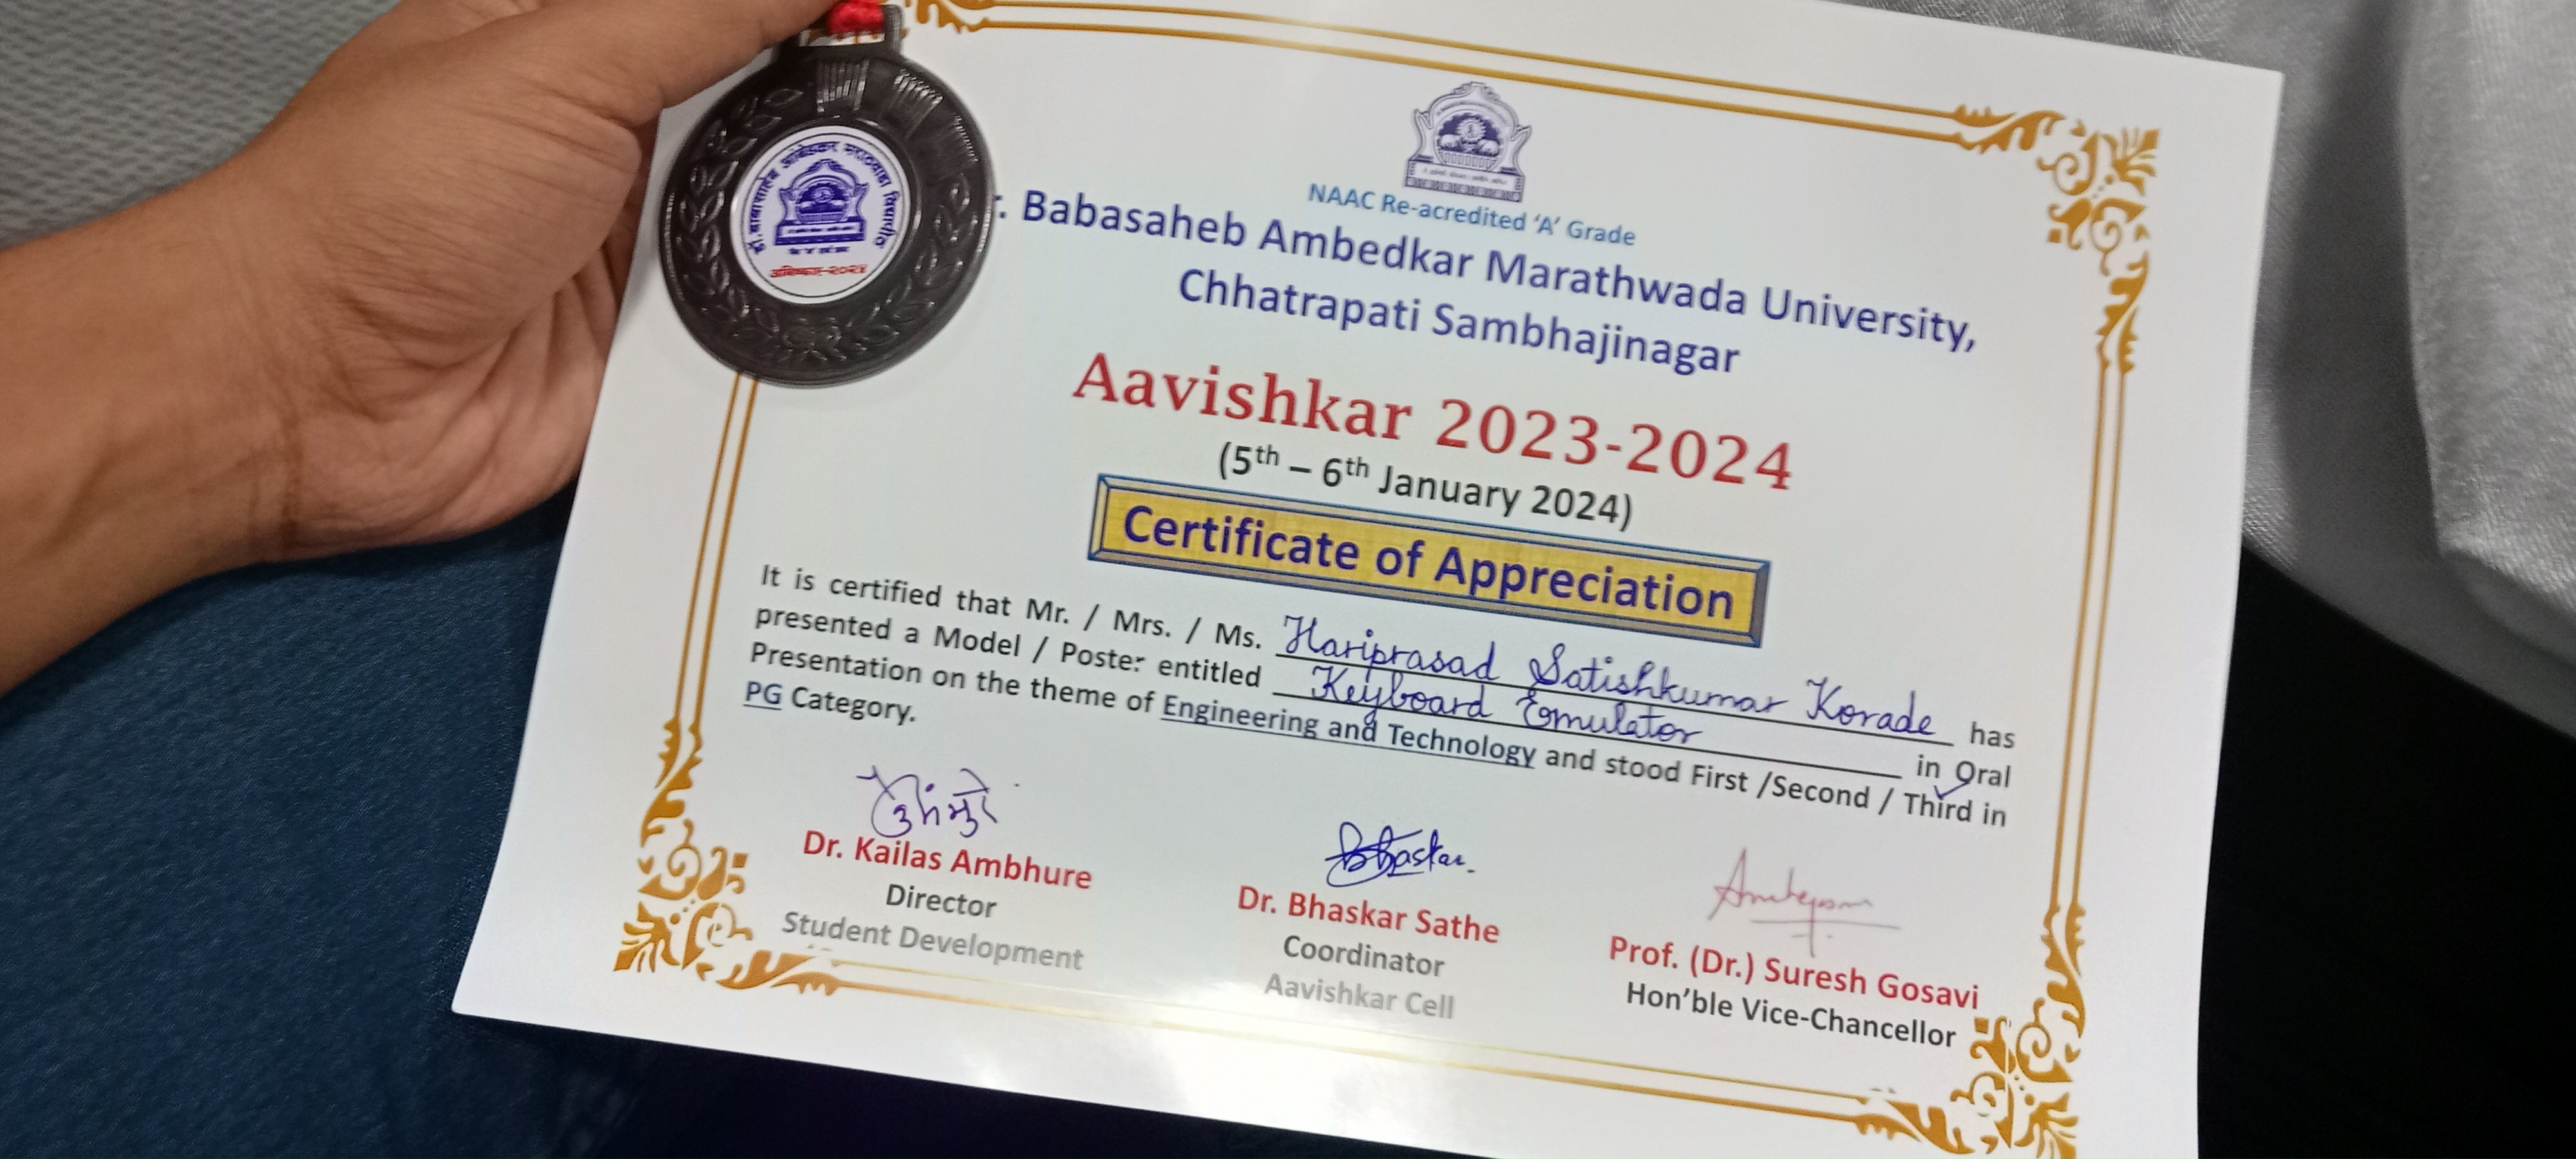 डॉ. बाबासाहेब आंबेडकर मराठवाडा विद्यापीठ
आविष्कार-२०२४
NAAC Re-acredited ‘A’ Grade
r. Babasaheb Ambedkar Marathwada University,
Chhatrapati Sambhajinagar
Aavishkar 2023-2024
(5th – 6th January 2024)
Certificate of Appreciation
It is certified that Mr. / Mrs. / Ms. Hariprasad Satishkumar Korade has
presented a Model / Poster entitled Keyboard Emulator in Oral
Presentation on the theme of Engineering and Technology and stood First /Second / Third in
PG Category.
Bhaskar.
Dr. Kailas Ambhure
Director
Student Development
Dr. Bhaskar Sathe
Coordinator
Aavishkar Cell
Prof. (Dr.) Suresh Gosavi
Hon’ble Vice-Chancellor